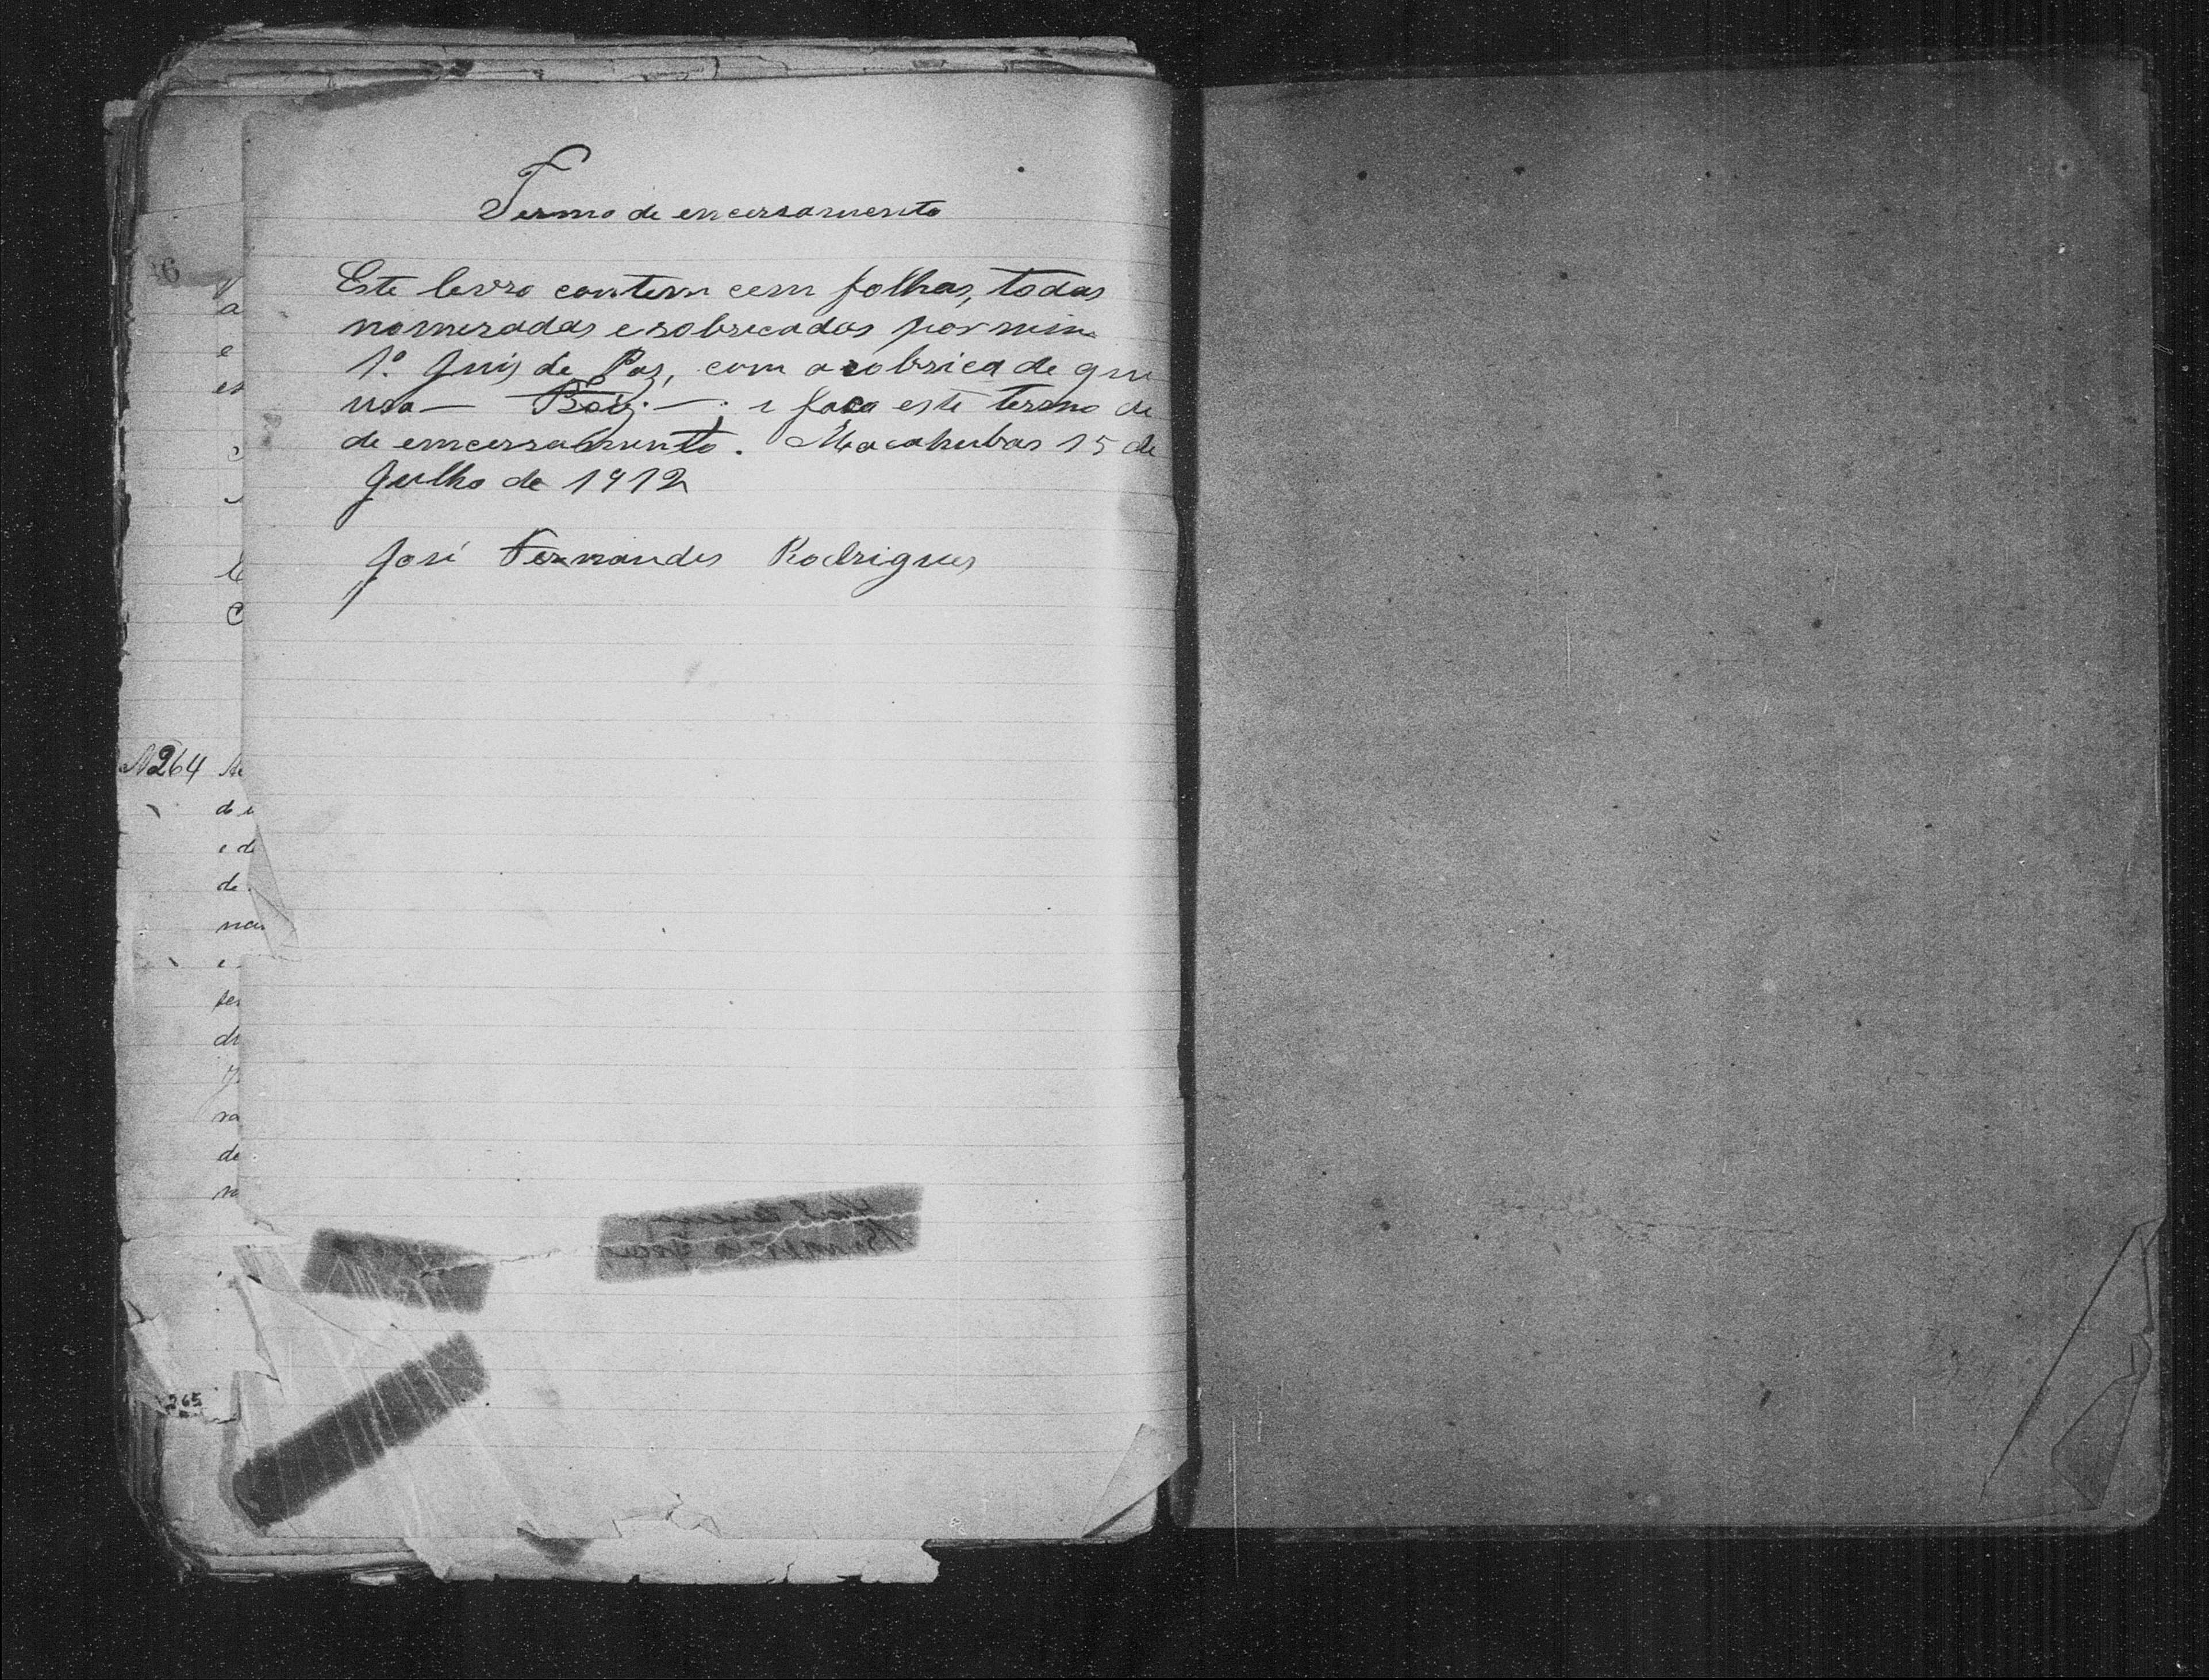 Termo de encerramento
Este levro contem cem folhas, todas
nomeradas e robricadas por mim
1º Juis de Pas, com a robrica de que
uso — — ; e faço este termo de
de emcerramento. Macahubas 15 de
Julho de 1912
José Fernandes Rodrigues
N 264
do
e de
de
265